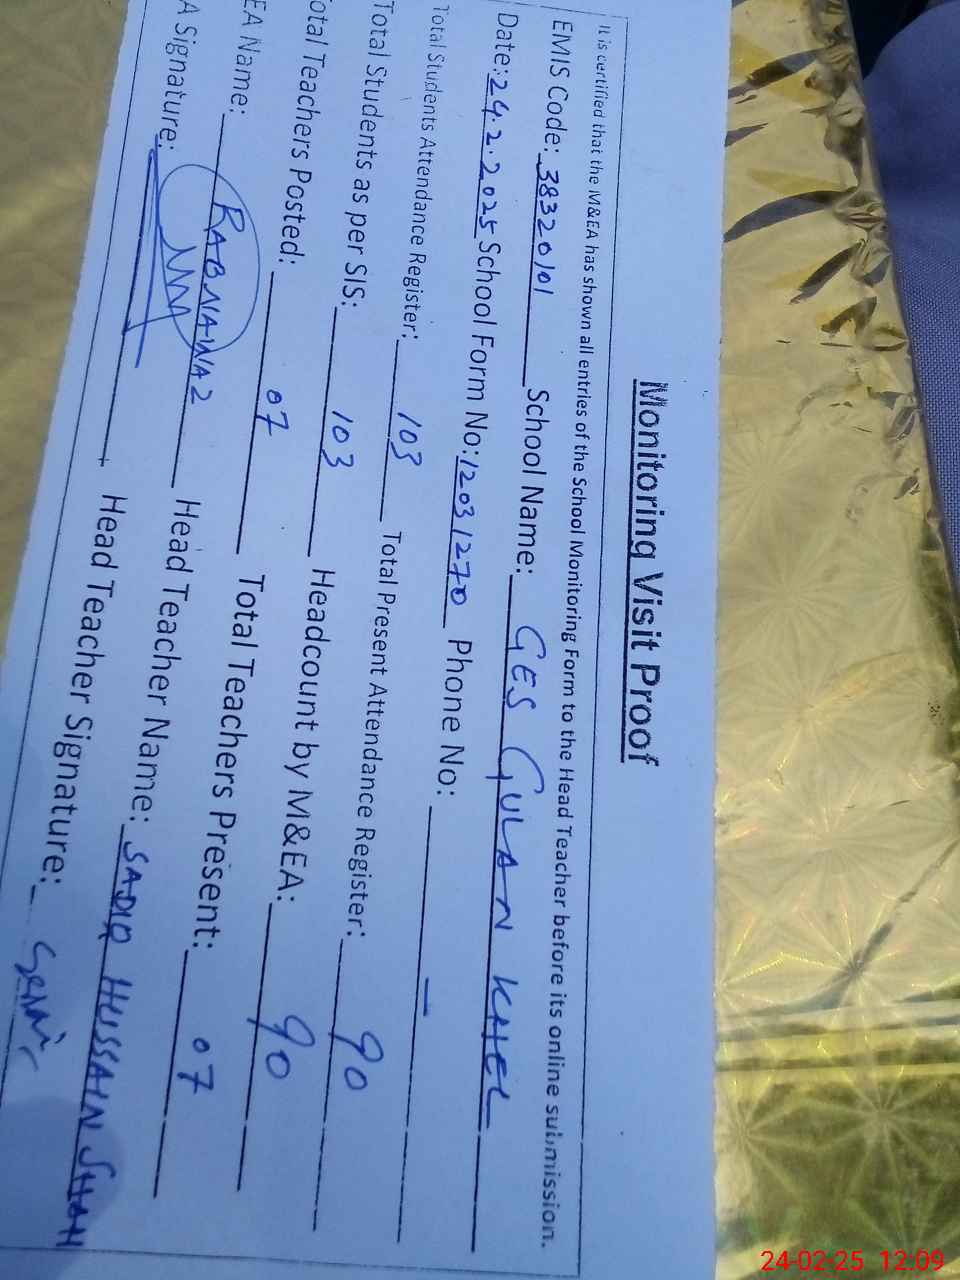 Monitoring Visit Proof
It is certified that the M&EA has shown all entries of the School Monitoring Form to the Head Teacher before its online submission.
EMIS Code: 38320101 School Name: GES GULAN KHEL
Date: 24.2.2025 School Form No: 12031270 Phone No: —
Total Students Attendance Register: 103 Total Present Attendance Register: 90
Total Students as per SIS: 103 Headcount by M&EA: 90
otal Teachers Posted: 07 Total Teachers Present: 07
EA Name: RABNAWAZ Head Teacher Name: SADIR HUSSAIN SHAH
A Signature: Head Teacher Signature:
24-02-25 12:09